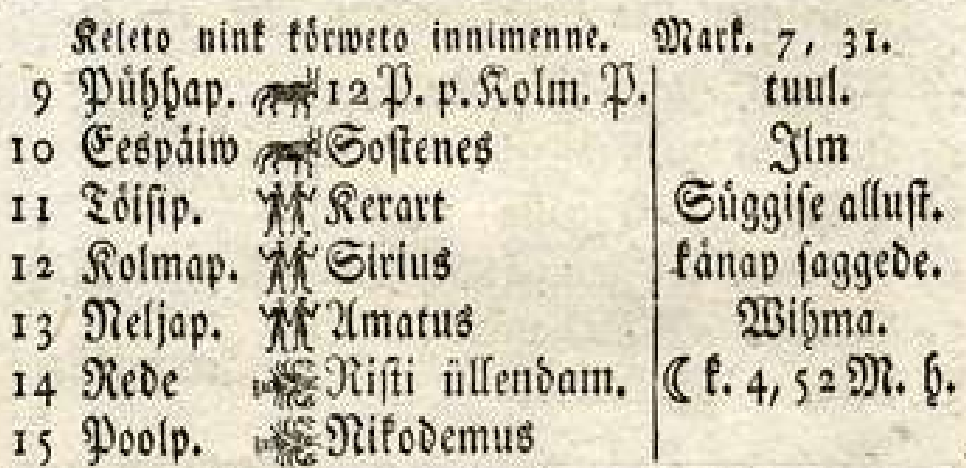 Keleto nink körweto innimenne. Mark. 7, 31.
9 Pühhap. 12 P. p. Kolm. P. tuul.
10 Eespäiw Sostenes Ilm
11 Töisip. Kerart Süggise allust.
12 Kolmap. Sirius känap saggede.
13 Neljap. Amatus Wihma.
14 Rede Risti üllendam. ☾ k. 4, 52 M. h.
15 Poolp. Nikodemus